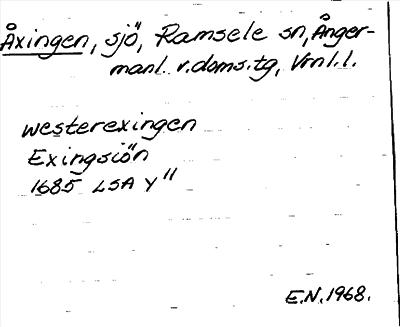 Åxingen, sjö, Ramsele sn, Ånger-
manl. v.doms.tg, Vrnl.l.
westerexingen
Exingsiön
1685 LSA Y"
E.N.1968.